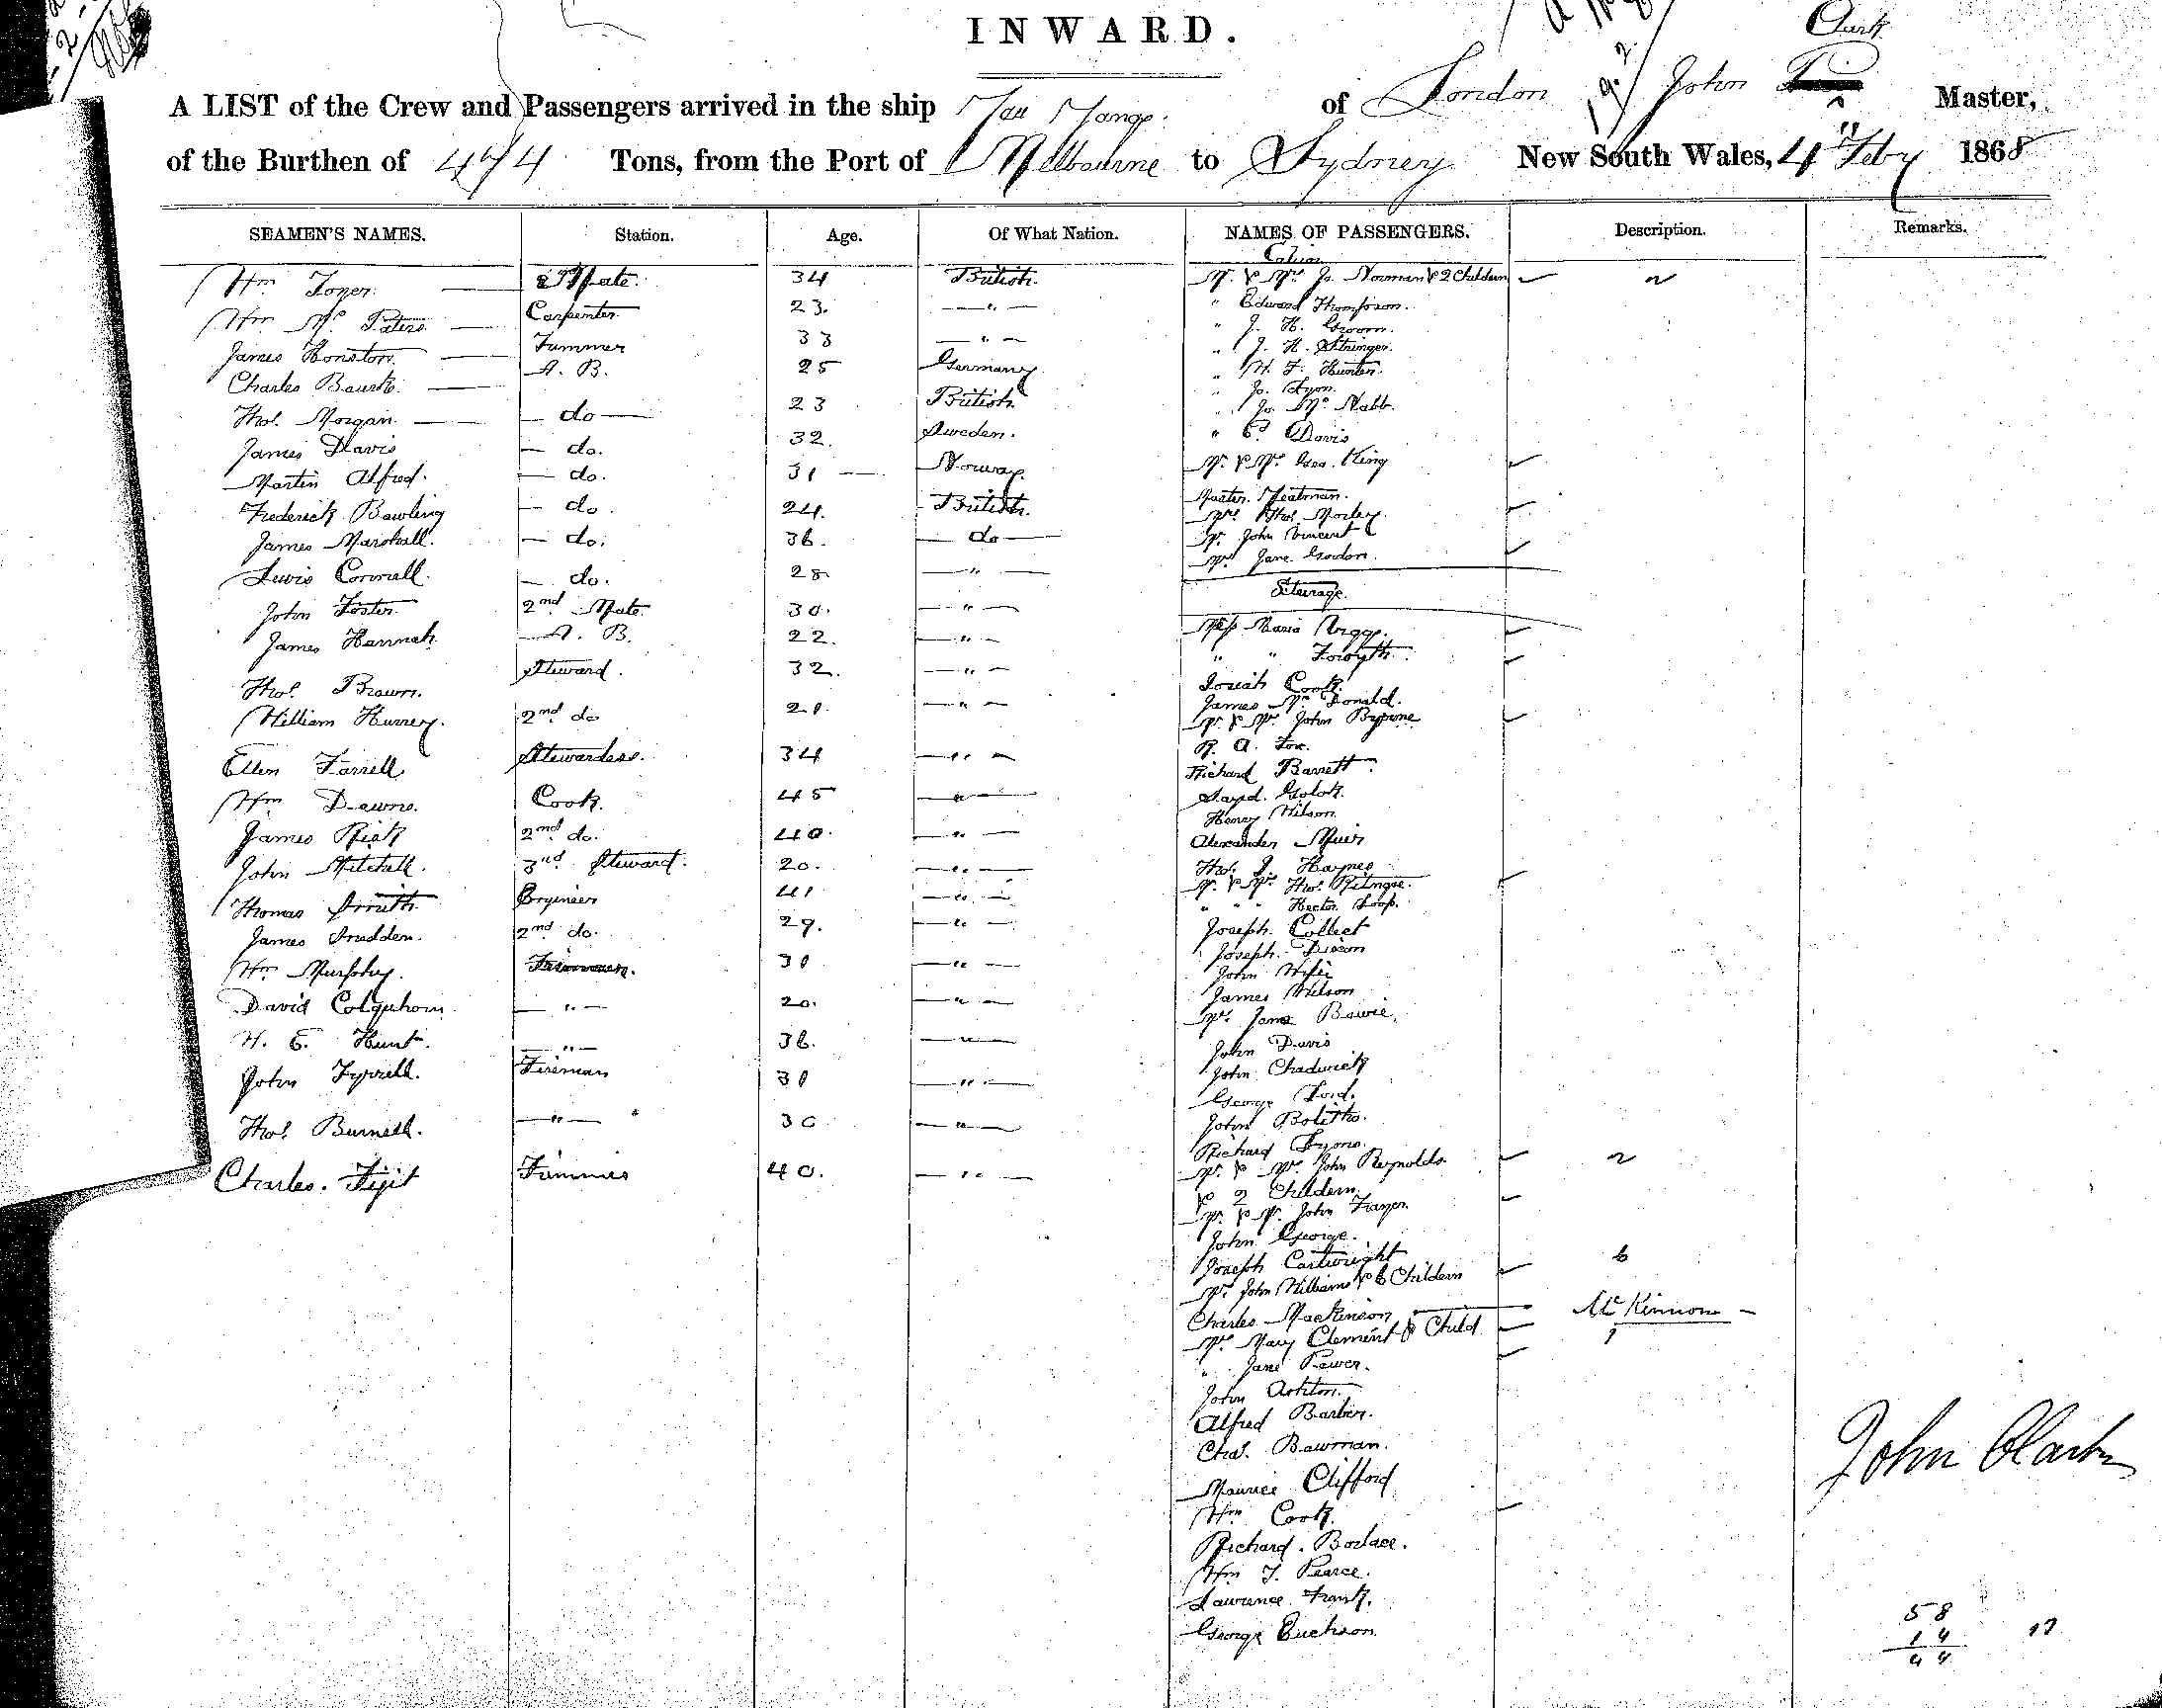 INWARD.
Clark
A LIST of the Crew and Passengers arrived in the ship You Yangs. of London John Master,
of the Burthen of 474 Tons, from the Port of Melbourne to Sydney New South Wales, 4th Feby 1868
SEAMEN'S NAMES. Station. Age. Of What Nation. NAMES OF PASSENGERS. Description. Remarks.
Cabin
Wm Toyer. Mate. 34 British. Mr & Mrs Jo. Norman & 2 Childern
Wm Mc Peters Carpenter 23. " " Edward Thompson.
James Honston. Trimmer 33 " " J. H. Groom.
" J. H. Stringer.
Charles Baurk. A. B. 25 Germany " W. F. Hunter.
" Jo. Lyon.
Thos. Morgan. do 23 British " Jo. Mc Nabb.
James Davis do. 32. Sweden. " C. Davis
Martin Alfred. do. 31 Norway. Mr & Mrs Geo. King
Frederick Bawling do. 24. British. Master. Yeatman.
Mrs Thos. Morley.
James Marshall. do. 36. do Mr John Vincent
Mrs Jane Gordon.
Lewis Connell. do. 28 "
Steerage.
John Foster. 2nd Mate. 30. "
James Hannah. A. B. 22. " Miss Maria Briggs.
" " Forsyth.
Thos. Brown. Steward. 32. " Josiah Cook.
James Mc Donald.
William Hurrey. 2nd do 20. " Mr & Mrs John Byrnne
R. A. Fox.
Ellen Farrell Stewardess. 34 " Richard Barrett.
Wm Dawns. Cook. 45 "
Henry Wilson.
James Rick 2nd do. 40. " Alexander Muir
John Mitchall. 3rd Steward. 20. " Thos. J. Haynes
Mr & Mrs Thos.
Thomas Smith Engineer 41 " " " " Hector
James Snedden. 2nd do. 29. " Joseph Collect
Joseph Dixon
Wm Murphy. 30 " John
James Wilson
David Colquhoun. " 20. " Mrs Jane Bowie.
H. E. Hunt. " 36. " John Davis
John Tyrrell. Fireman 30 " John Chadwick
George Ford.
Thos. Burnell. " 30 " John Bolitho.
Richard Symo.
Charles. Figit Trimmer 40. " Mr & Mrs John Reynolds.
& 2 Childern.
Mr & Mrs. John Frazer.
John George.
Joseph Cartwright
Mrs John Williams & 6 Childern 6
Charles Mackinson Mc Kinnon
Mrs Mary Clement & Child 1
" Jane Power.
John Ashton.
Alfred Barber.
Chas. Bawman.
John Clark
Maurice Clifford
Wm Cook.
Richard. Borlace.
Wm J. Pearce.
Lawrence Frank.
58
George Euchison. 14 17
44